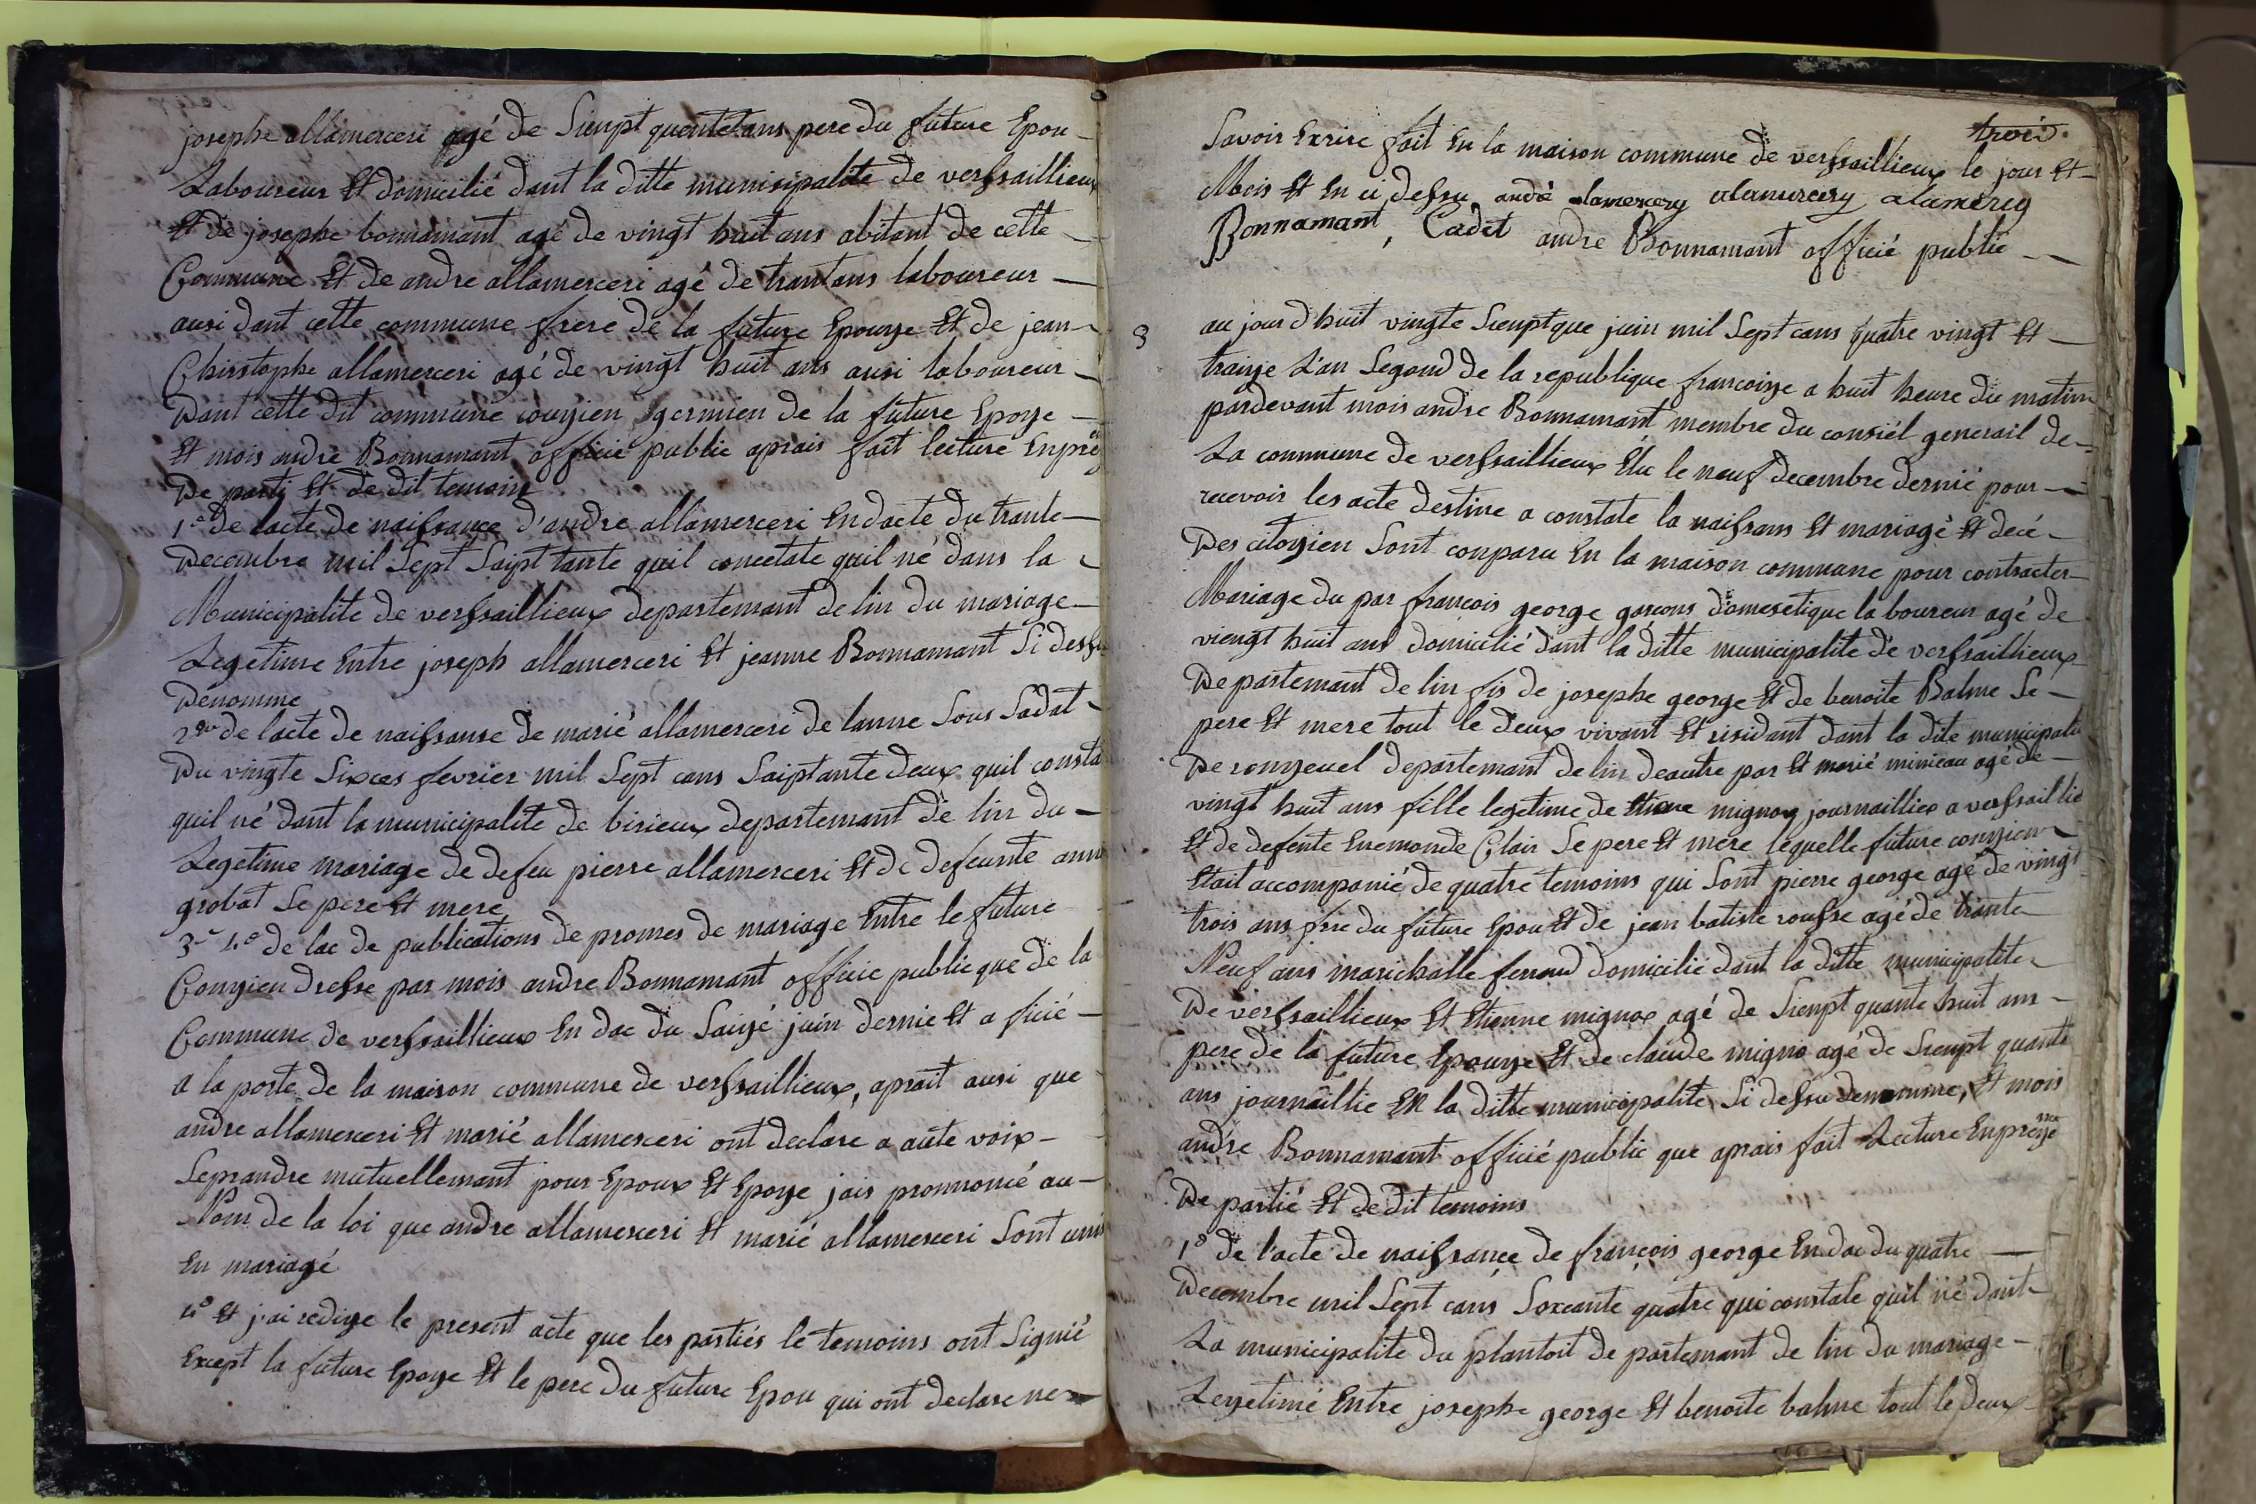 josephe allamerceri agé de Sieupt quentetans pere du future Epou -
Laboureur Et domicilié dant la ditte municipalité de versaillieux
Et de josephe bonnamant agé de vingt huit ans abitant de cette -
Commune Et de andre allamerceri agé de trant ans laboureur -
ausi dant cette commune frere de la future Epouse Et de jean -
Chirstophe allamerceri agé de vingt huit ans ausi laboureur -
Dant cette dit commune cousien germien de la future Epose -
Et mois andre Bonnamant officié public aprais fait lecture Enpre
De parti Et de dit temoins
1° De lacte de naissance d'andre allamerceri En dacte du trante -
Decembre mil Sept Saipt tante quil conectate quil né dans la -
Municipalite de versaillieux departemant de lin du mariage -
Legetime Entre joseph allamerceri Et jeanne Bonnamant Si dessu
Denomme
2 de lacte de naissanse de marié allamerceri de lanne Sous Sadat -
Du vingte Sixces fevrier mil Sept cans Saiptante deux quil consta
quil né dant la municipalite de birieux departemant de lin du -
Legetime mariage de defeu pierre allamerceri Et de defeunte anne
grobat Se pere Et mere
3 4° de lac de publications de promes de mariage Entre le future
Consien dresse par mois andre Bonnamant officie public que de la
Commune de versaillieux En dac du Saize juin dernie Et a ficié -
a la porte de la maison commune de versaillieux, aprait ausi que
andre allamerceri Et marié allamerceri ont declare a aute voix -
Seprandre mutuellemant pour Epoux Et Epose jais pronnoncé au -
Nom de la loi que andre allamerceri Et marié allamerceri Sont unis
En mariagé
4° Et j'ai redige le present acte que les partiés le temoins ont Signié
Except la future Epose Et le pere du future Epou qui ont declare ne
trois.
Savoir Exrire fait En la maison commune de versaillieux le jour Et -
Mois Et En ci dessu andré alamercery alamercery alamercy
Bonnamant, Cadet andre Bonnamant officié public - -
3
au jour d'huit vingte Sieuptque juin mil Sept cans quatre vingt Et -
traize L'an Segond de la republique francoise a huit heure du matin
pardevant mois andre Bonnamant membre du consiél generail de -
La commune de versaillieux Elu le neuf decembre dernié pour -
recevoir les acte destine a constate la naissans Et mariagé Et decé -
Des citoyien Sont conparu En la maison commune pour contracter
Mariage du par françois george garçons domesetique laboureur agé de
viengt huit ans domicilié dant la ditte municipalite de versaillieux
Departemant de lin fis de josephe george Et de benoite Balme Se -
pere Et mere tout le deux vivant Et risidant dant la dite municipalite
De ronzeuel departemant de lin deautre par Et marié minieau agé de -
vingt huit ans fille legetime de Etiene mignox journaillier a versaillie
Et de defente Enemonde Clair Se pere Et mere lequelle future conzien
Etait accompanié de quatre temoins qui Sont pierre george agé de vingt
trois ans frre du future Epou Et de jean batiste rousse agé de trante
Neuf ans marichalle ferrand domicilié dant la ditte municipalite
De versaillieux Et Etienne mignox agé de Sieupt quante huit ans -
pere de la future Epouse Et de claude migno agé de Sieupt quante
ans journaillie En la ditte municipalite Si dessu denomme, Et mois
andre Bonnamant officié public que aprais fait Lecture Enpreze
De partié Et de dit temoins
1° de l'acte de naissance de françois george En dac du quatre -
Decembre mil Sept cans Soxcante quatre qui constate quil né dant
La municipalite du plantoit departemant de lin du mariage -
Legetimé Entre josephe george Et benoite balme tout le deux